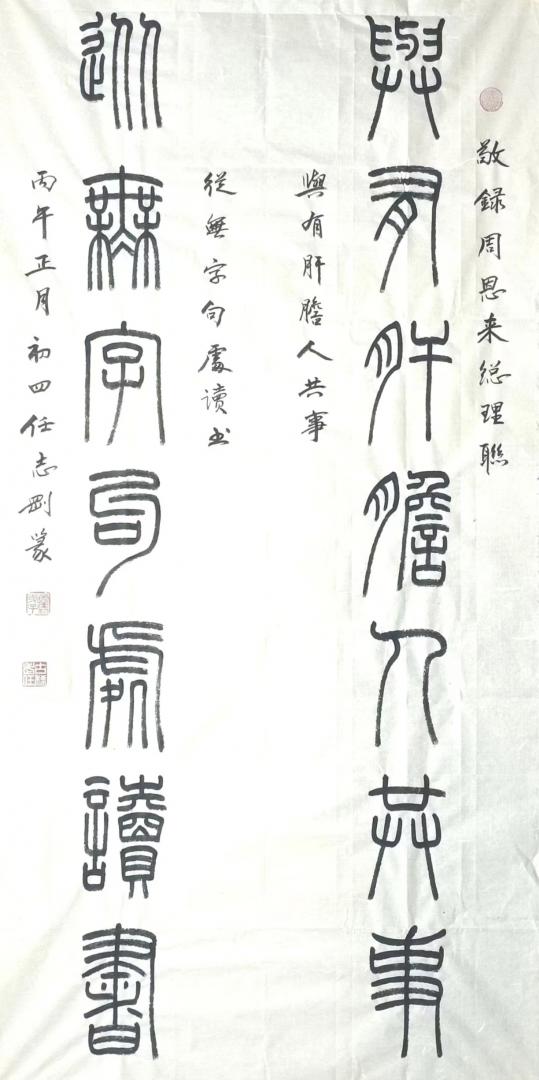 敬録周恩来総理聯
與有肝膽人共事
與有肝膽人共事
從無字句處讀书
從無字句處讀書
丙午正月初四任志剛篆